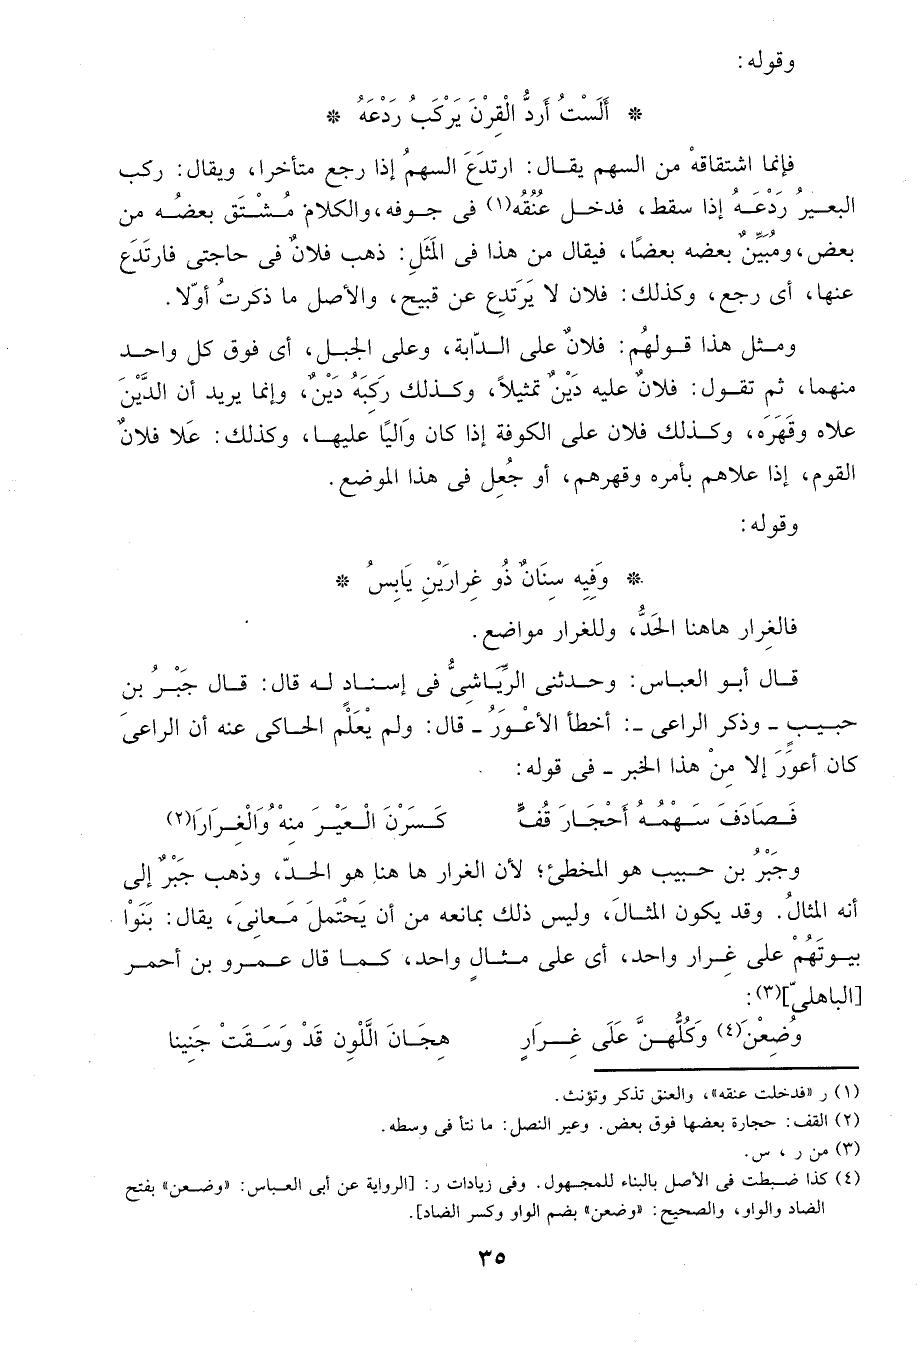 وقوله:
* أَلَسْتُ أَرُدُّ الْقِرْنَ يَرْكَبُ رَدْعَهُ *
فإنما اشتقاقهْ من السهم يقال: ارتدَعَ السهمُ إذا رجع متأخرا، ويقال: ركب
البعيرُ رَدْعَهُ إذا سقط، فدخل عُنُقُه(١) فى جوفه، والكلام مُشْتَق بعضُه من
بعض، ومُبَيِّنٌ بعضه بعضًا، فيقال من هذا فى المَثَلِ: ذهب فلانٌ فى حاجتى فارتَدَع
عنها، أى رجع، وكذلك: فلان لا يَرتَدِع عن قبيح، والأصل ما ذكرتُ أوّلا.
ومثل هذا قولهُم: فلانٌ على الدابّة، وعلى الجبل، أى فوق كل واحد
منهما، ثم تقول: فلانٌ عليه دَيْنٌ تمثيلاً، وكذلك رَكِبَهُ دَيْنٌ، وإنما يريد أن الدَّيْنَ
علاه وقَهَرَه، وكذلك فلان على الكوفة إذا كان وَاليًا عليها، وكذلك: عَلا فلانٌ
القوم، إذا علاهم بأمره وقهرهم، أو جُعِل فى هذا الموضع.
وقوله:
* وَفِيهِ سِنَانٌ ذُو غِرارَيْنِ يَابِسُ *
فالغِرار هاهنا الحَدُّ، وللغرار مواضع.
قال أبو العباس: وحدثنى الرِّيَاشىُّ فى إسناد له قال: قال جَبْرُ بن
حبيبٍ ـ وذكر الراعى ـ: أخطأ الأعْوَرُ ـ قال: ولم يُعْلَم الحاكى عنه أن الراعىَ
كان أعوَرَ إلا مِنْ هذا الخبر ـ فى قوله:
فَصَادَفَ سَهْمُهُ أَحْجَارَ قُفٍّ كَسَرْنَ الْعَيْرَ مِنهُ وَالْغِرارَا(٢)
وجَبْرُ بن حبيب هو المخطئ؛ لأن الغرار ها هنا هو الحدّ، وذهب جَبْرٌ إلى
أنه المثالُ. وقد يكون المثالَ، وليس ذلك بمانعه من أن يَحْتَمِلَ مَعانىَ، يقال: بَنَوْا
بيوتَهُمْ على غِرار واحد، أى على مثالٍ واحد، كما قال عمرو بن أحمر
[الباهلىّ](٣):
وُضِعْنَ(٤) وَكُلُّهُنَّ عَلَى غِرَارٍ هِجَانَ الَّلوْنِ قَدْ وَسَقَتْ جَنِينا
(١) ر «فدخلت عنقه»، والعنق تذكر وتؤنث.
(٢) القف: حجارة بعضها فوق بعض. وعير النصل: ما نتأ فى وسطه.
(٣) من ر ، س.
(٤) كذا ضبطت فى الأصل بالبناء للمجهول. وفى زيادات ر: [الرواية عن أبى العباس: «وضعن» بفتح
الضاد والواو، والصحيح: «وضعن» بضم الواو وكسر الضاد].
٣٥